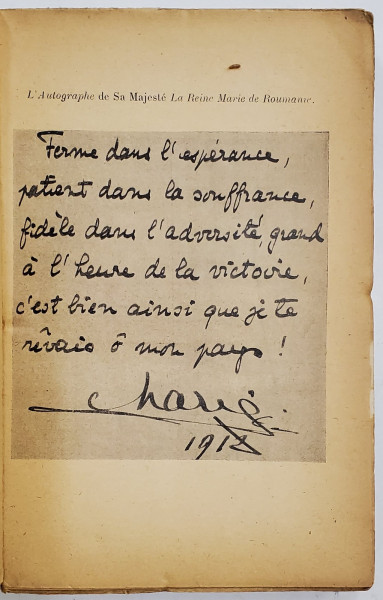 L'Autographe de Sa Majesté La Reine Marie de Roumanie.
Ferme dans l'espérance,
patient dans la souffrance,
fidèle dans l'adversité, grand
à l'heure de la victoire,
c'est bien ainsi que je te
rêvais ô mon pays !
Marie
1918